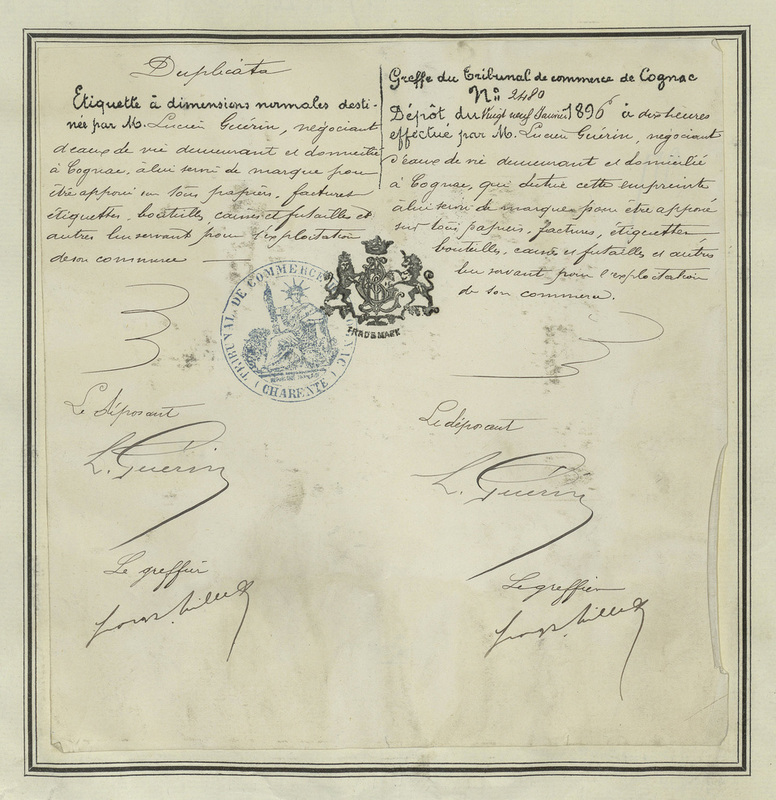 Duplicata
Etiquette à dimensions normales desti-
née par M. Lucien Guérin, négociant
d'eaux de vie demeurant et domicilié
à Cognac, à lui servir de marque pour
être apposé sur tous papiers, factures
étiquettes, bouteilles, caisses et futailles et
autres lui servant pour l'exploitation
de son commerce
Le déposant
L. Guérin
Le greffier
Greffe du Tribunal de commerce de Cognac
N° 2480
Dépôt du Vingt neuf Janvier 1896 à dix heures
effectué par M. Lucien Guérin, négociant
d'eaux de vie demeurant et domicilié
à Cognac, qui destine cette empreinte
à lui servir de marque pour être apposé
sur tous papiers, factures, étiquettes
bouteilles, caisses et futailles et autres
lui servant pour l'exploitation
de son commerce.
Le déposant
L. Guérin
Le greffier
TRIBUNAL DE COMMERCE
CHARENTE
TRADE MARK